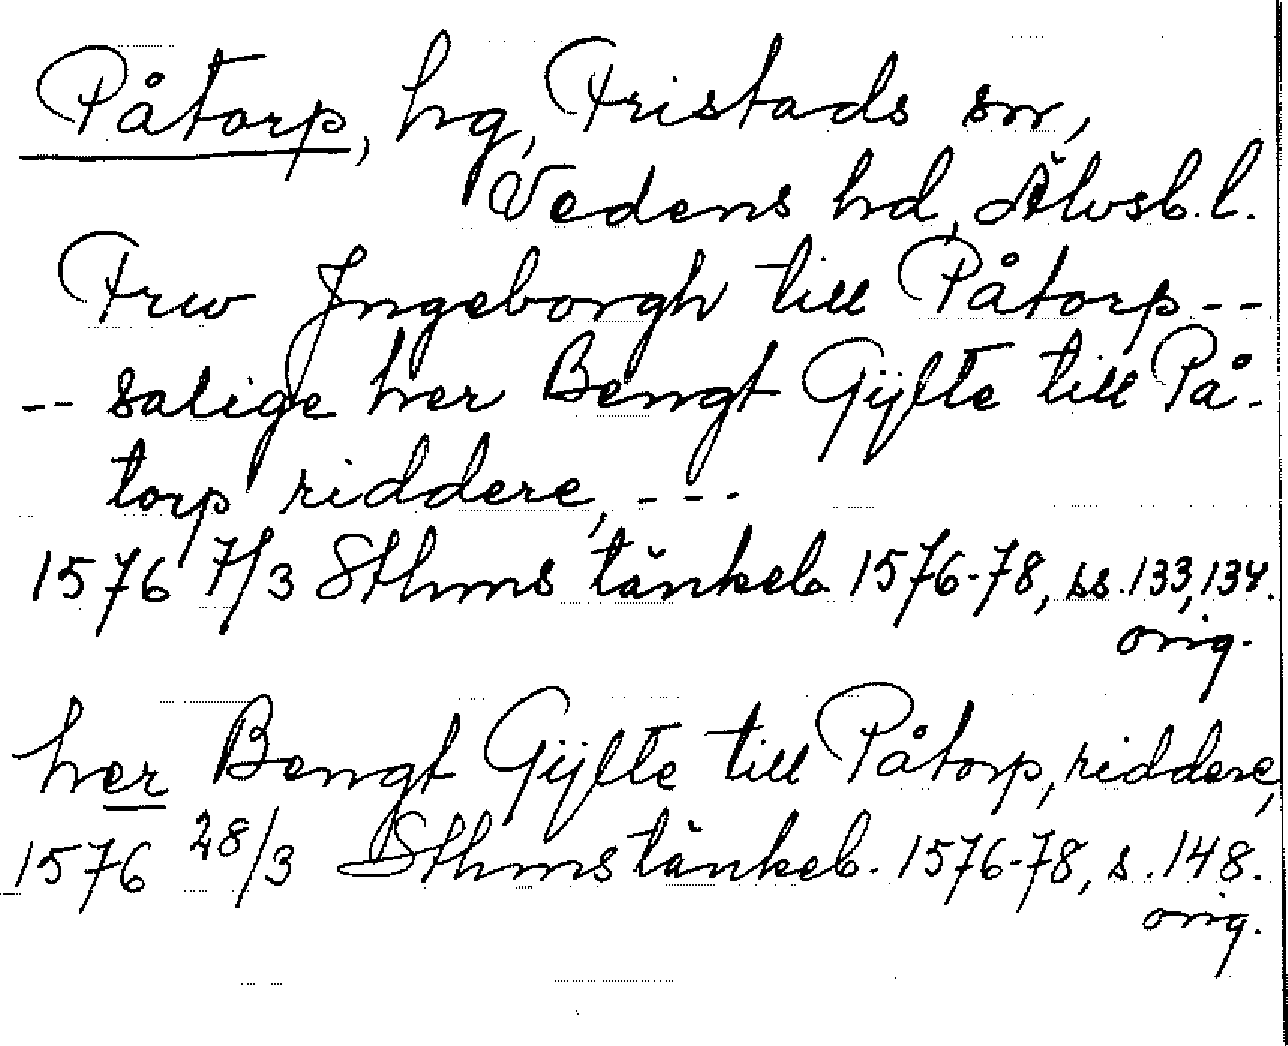 Påtorp, hg, Fristads sn,
Vedens hd, Älvsb. l.
Frw Jngeborgh till Påtorp - -
- - salige her Bengt Gÿlte till På-
torp riddere, - - -
1576 7/3 Sthms tänkeb. 1576-78, ss. 133, 134.
orig.
her Bengt Gÿlte till Påtorp, riddere,
1576 28/3 Sthms tänkeb. 1576-78, s. 148.
orig.